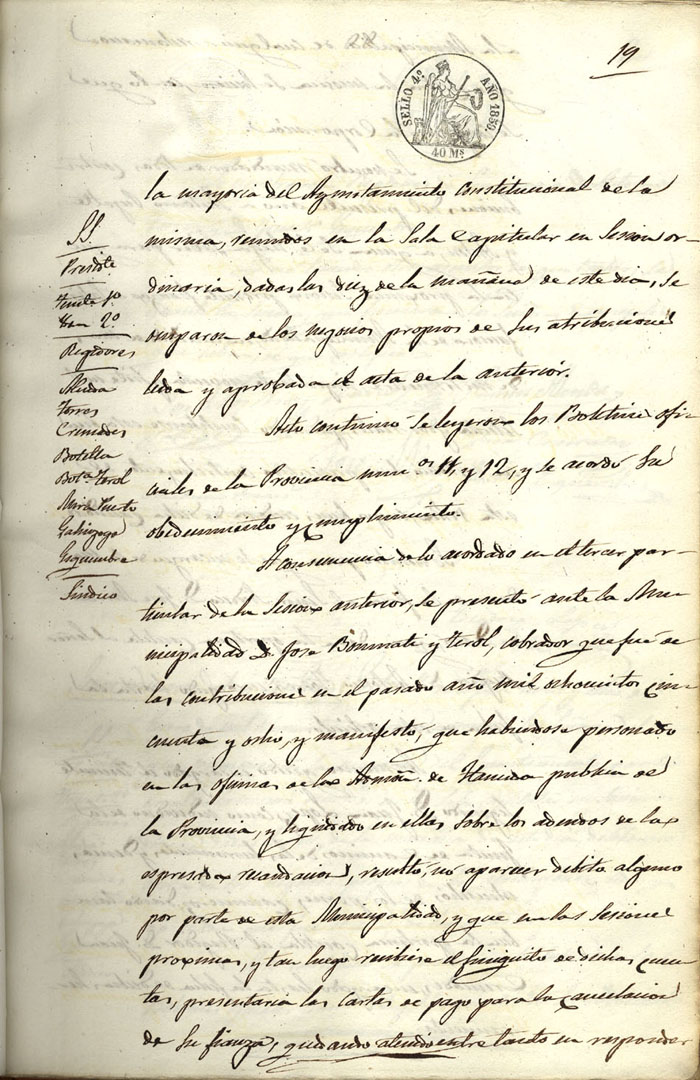 19
SELLO 4º. AÑO 1859.
40 Ms
SS
Presdte
Tente 1º
Idem 2º
Regidores
Torres
Cremades
Botella
Bota Terol
Mira Puerto
Galinzoga
Esquembre
Sindico
la mayoria del Ayuntamiento Constitucional de la
misma, reunidos en la Sala Capitular en Sesion or-
dinaria, dadas las diez de la mañana de este dia, se
ocuparon de los negocios propios de sus atribuciones
leida y aprobada el acta de la anterior.
Acto continuo se leyeron los Boletines ofi-
ciales de la Provincia numos 11, y 12, y se acordó su
obedecimiento y cumplimiento.
A consecuencia de lo acordado en el tercer par-
ticular de la Sesion anterior, se presentó ante la Mu-
nicipalidad D. Jose Bonmati y Terol, cobrador que fué de
las contribuciones en el pasado año mil ochocientos cin-
cuenta y ocho, y manifestó, que habiendose personado
en las oficinas de la Admon. de Hacienda publica de
la Provincia, y liquidado en ellas sobre los adeudos de la
espresada recaudacion, resultó, no aparecer debito alguno
por parte de esta Municipalidad, y que en las Sesiones
proximas, y tan luego recibiese el finiquito de dichas cuen-
tas, presentaria las cartas de pago para la cancelacion
de su fianza, quedando atenido entre tanto en responder